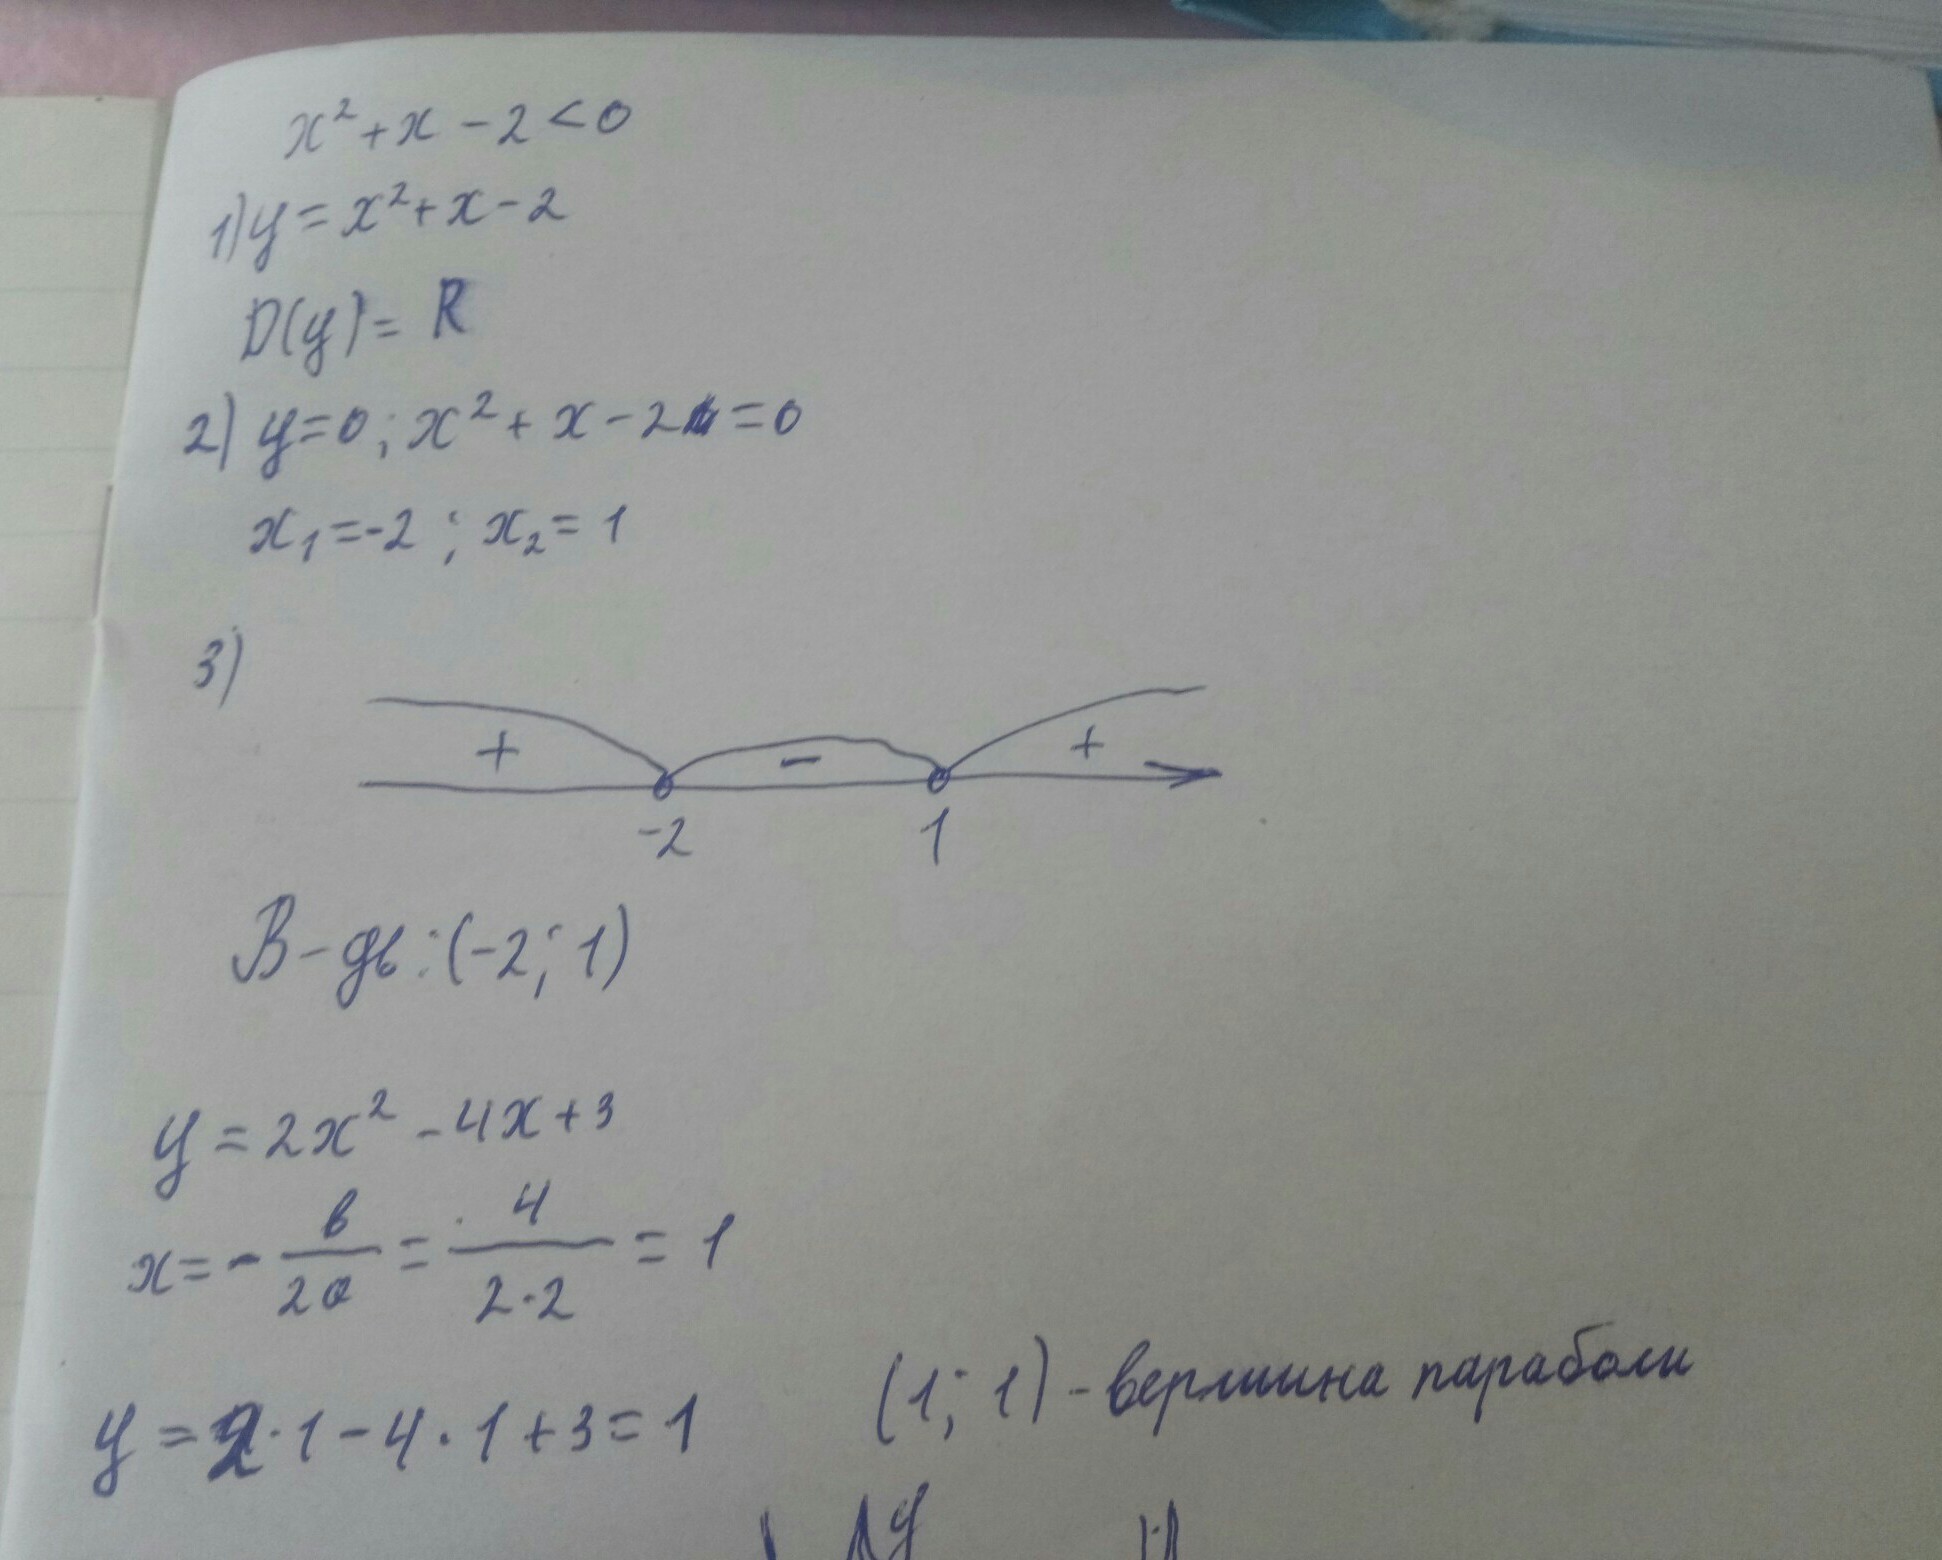 x² + x - 2 < 0
1) y = x² + x - 2
D(y) = R
2) y = 0; x² + x - 2 = 0
x₁ = -2; x₂ = 1
3)
+ - +
-2 1
В-дь: (-2; 1)
y = 2x² - 4x + 3
x = - в/2a = 4/2·2 = 1
y = 2·1 - 4·1 + 3 = 1
(1; 1) - вершина параболи
y